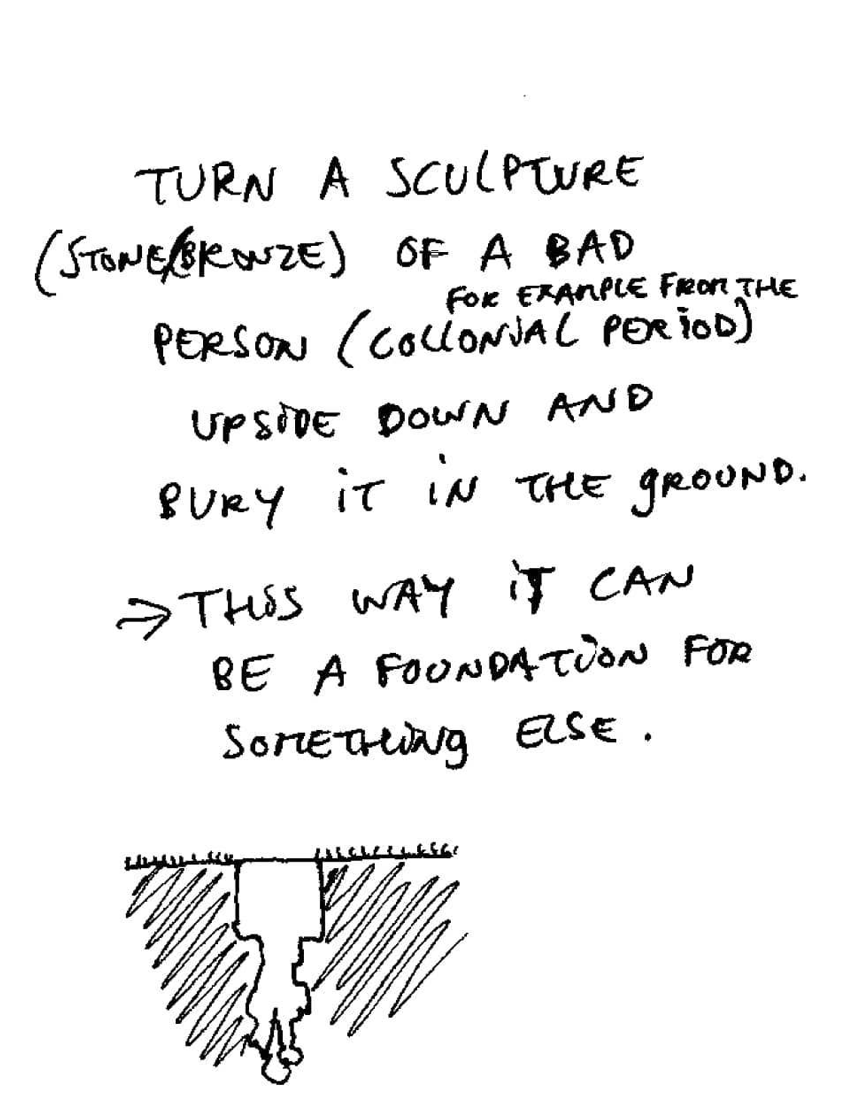 TURN A SCULPTURE
(STONE/BRONZE) OF A BAD
FOR EXAMPLE FROM THE
PERSON (COLLONIAL PERIOD)
UPSIDE DOWN AND
BURY IT IN THE GROUND.
⇒ THIS WAY IT CAN
BE A FOUNDATION FOR
SOMETHING ELSE.